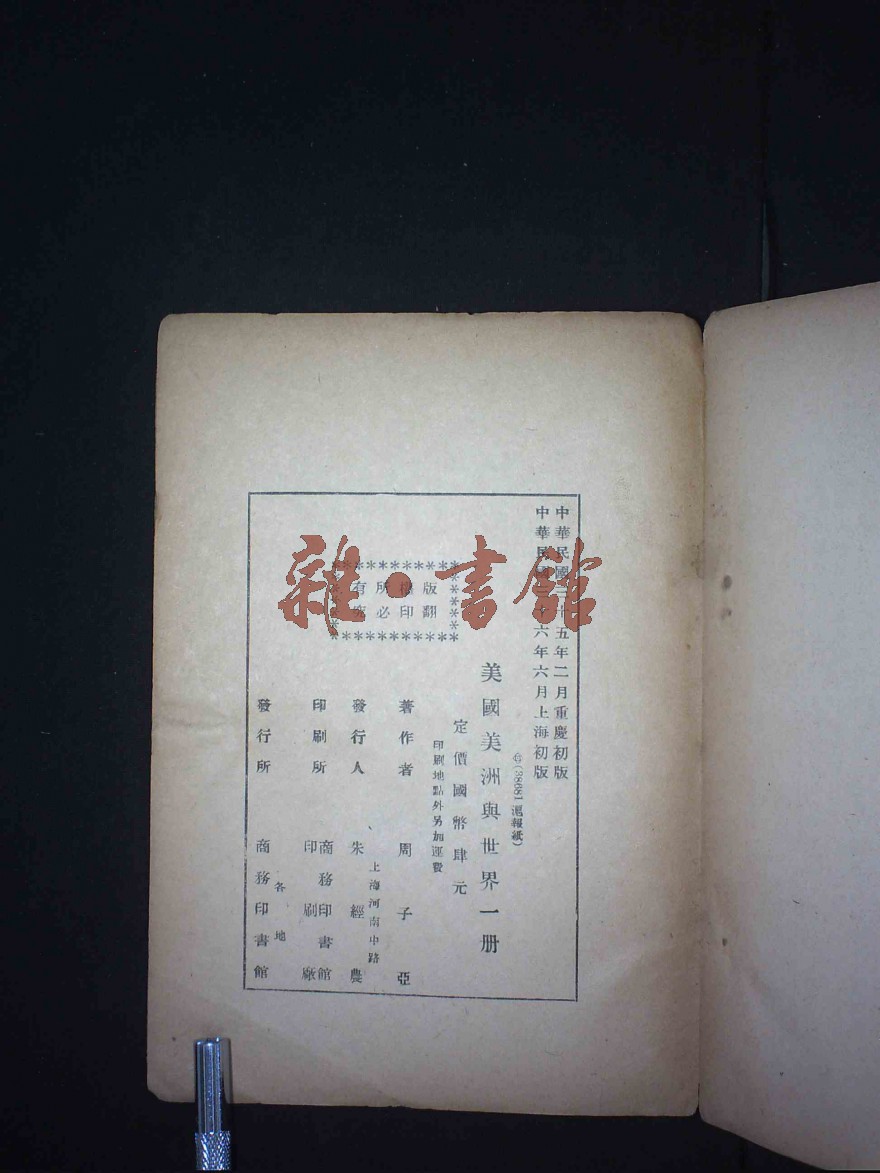 中華民國三十五年二月重慶初版
中華民國三十六年六月上海初版
(38681滬報紙)
美國美洲與世界一册
定價國幣肆元
印刷地點外另加運費
版權所有
翻印必究
著作者 周子亞
上海河南中路
發行人 朱經農
印刷所 商務印書館
印刷廠
發行所 各地
商務印書館
雜·書館